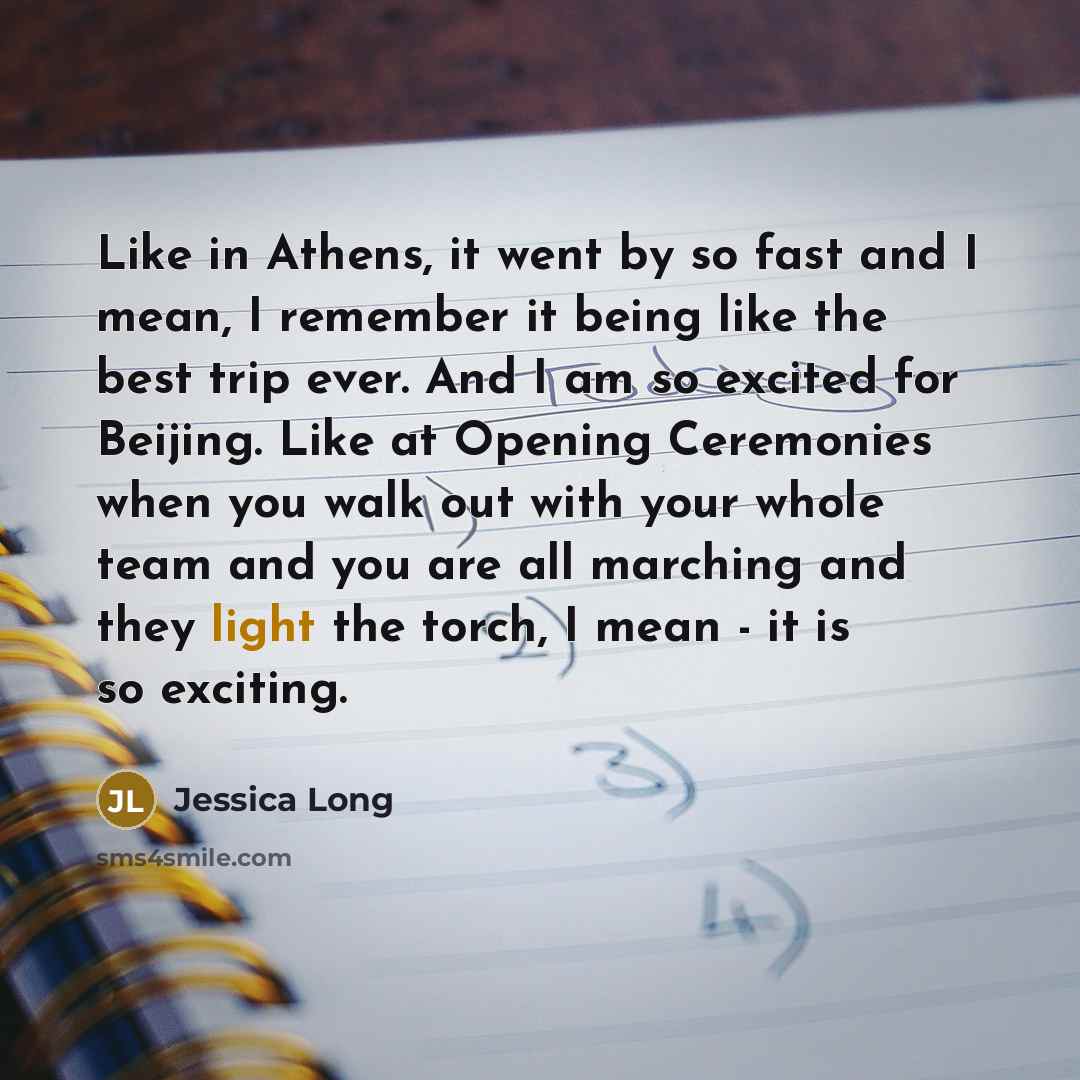 Like in Athens, it went by so fast and I
mean, I remember it being like the
best trip ever. And I am so excited for
Beijing. Like at Opening Ceremonies
when you walk out with your whole
team and you are all marching and
they light the torch, I mean - it is
so exciting.
JL Jessica Long
sms4smile.com
Today
1)
2)
3)
4)